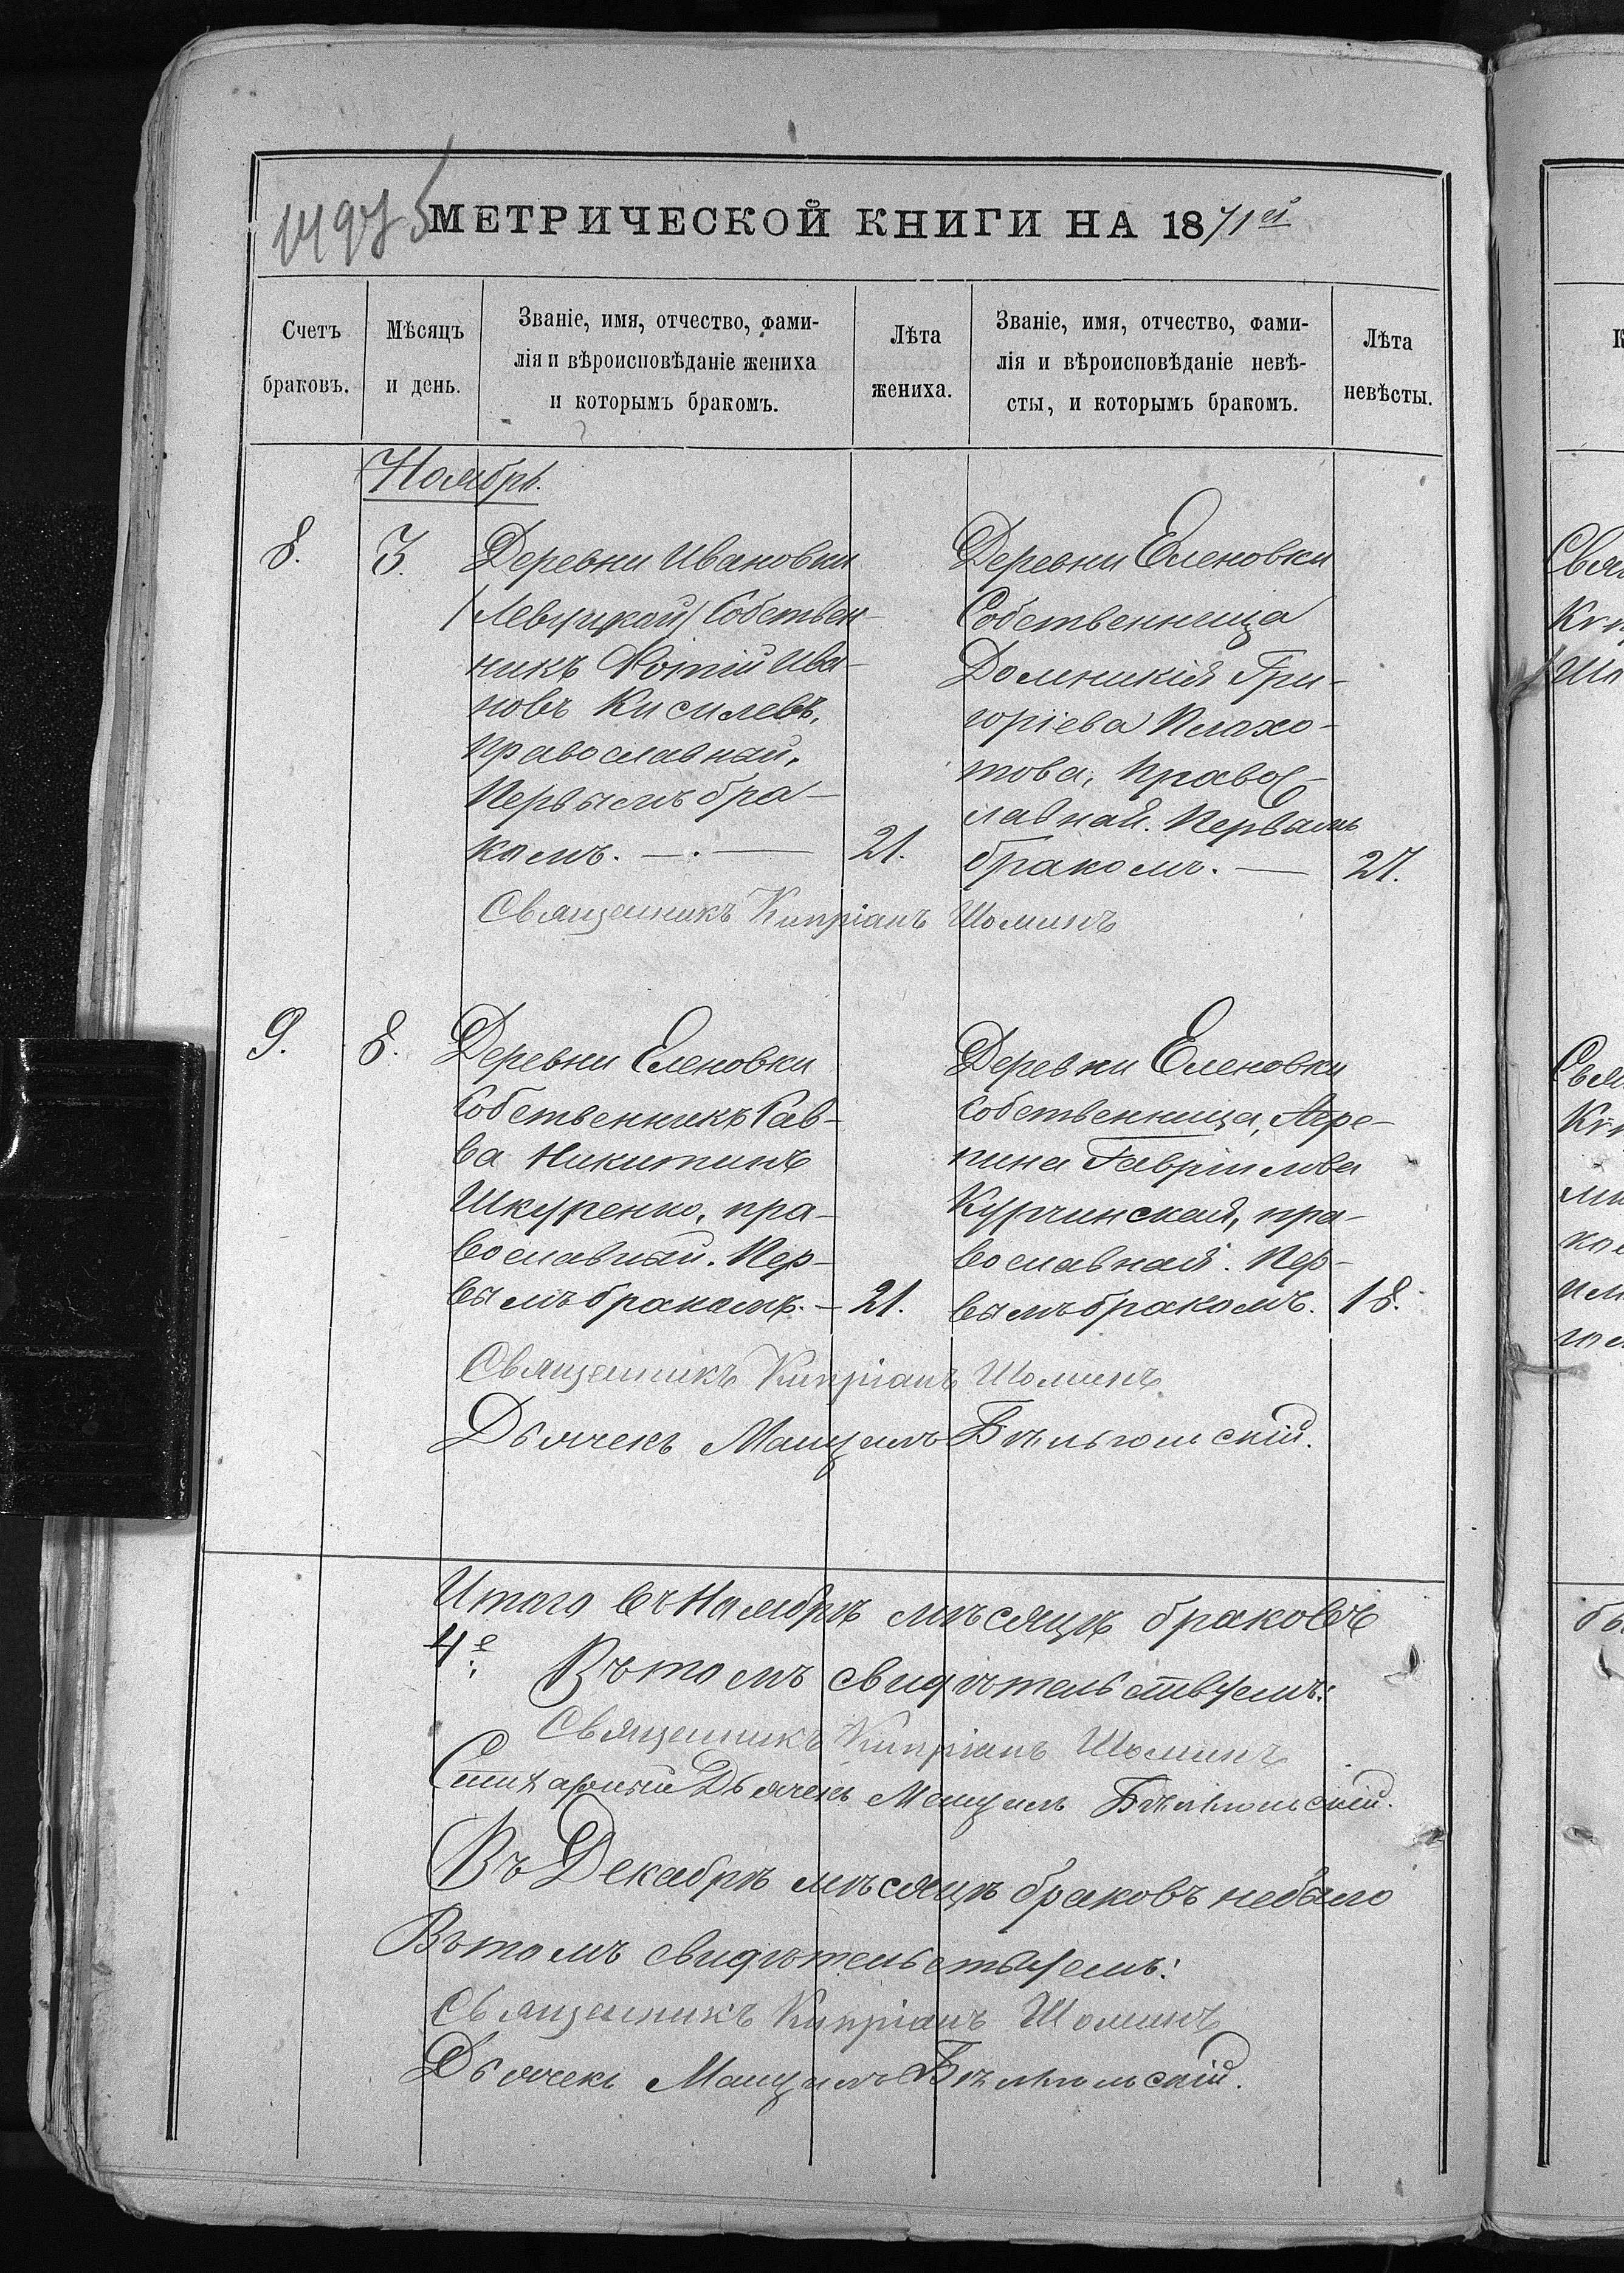 МЕТРИЧЕСКОЙ КНИГИ НА 1871й
Счетъ браковъ.
Мѣсяцъ и день.
Званіе, имя, отчество, фами-
лія и вѣроисповѣданіе жениха
и которымъ бракомъ.
Лѣта жениха.
Званіе, имя, отчество, фами-
лія и вѣроисповѣданіе невѣ-
сты, и которымъ бракомъ.
Лѣта невѣсты.
Ноябрь.
8.
3.
Деревни Ивановки
/Левуцкой/ Собствен-
никъ Фотій Ива-
новъ Кисилевъ,
православный,
Первымъ бра-
комъ. 21.
Деревни Еленовки
Собственница
Домникія Гри-
горіева Плахо-
това, Правос-
лавная. Первымъ
бракомъ. 27.
Священникъ Кипріанъ Шоминъ
9.
8.
Деревни Еленовки
Собственникъ Сав-
ва Никитинъ
Шкуренко, пра-
вославный. Пер-
вымъ бракомъ. 21.
Деревни Еленовки
собственница, Агре-
пина Гавріилова
Курчинская, пра-
вославная. Пер-
вымъ бракомъ. 18.
Священникъ Кипріанъ Шоминъ
Дьячекъ
Итого въ Ноябрѣ мѣсяцѣ браковъ
4е.
Въ томъ свидѣтельствуемъ:
Священникъ Кипріанъ Шоминъ
Дьячекъ
Въ Декабрѣ мѣсяцѣ браковъ небыло
Въ томъ свидѣтельствуемъ:
Священникъ Кипріанъ Шоминъ
Дьячекъ